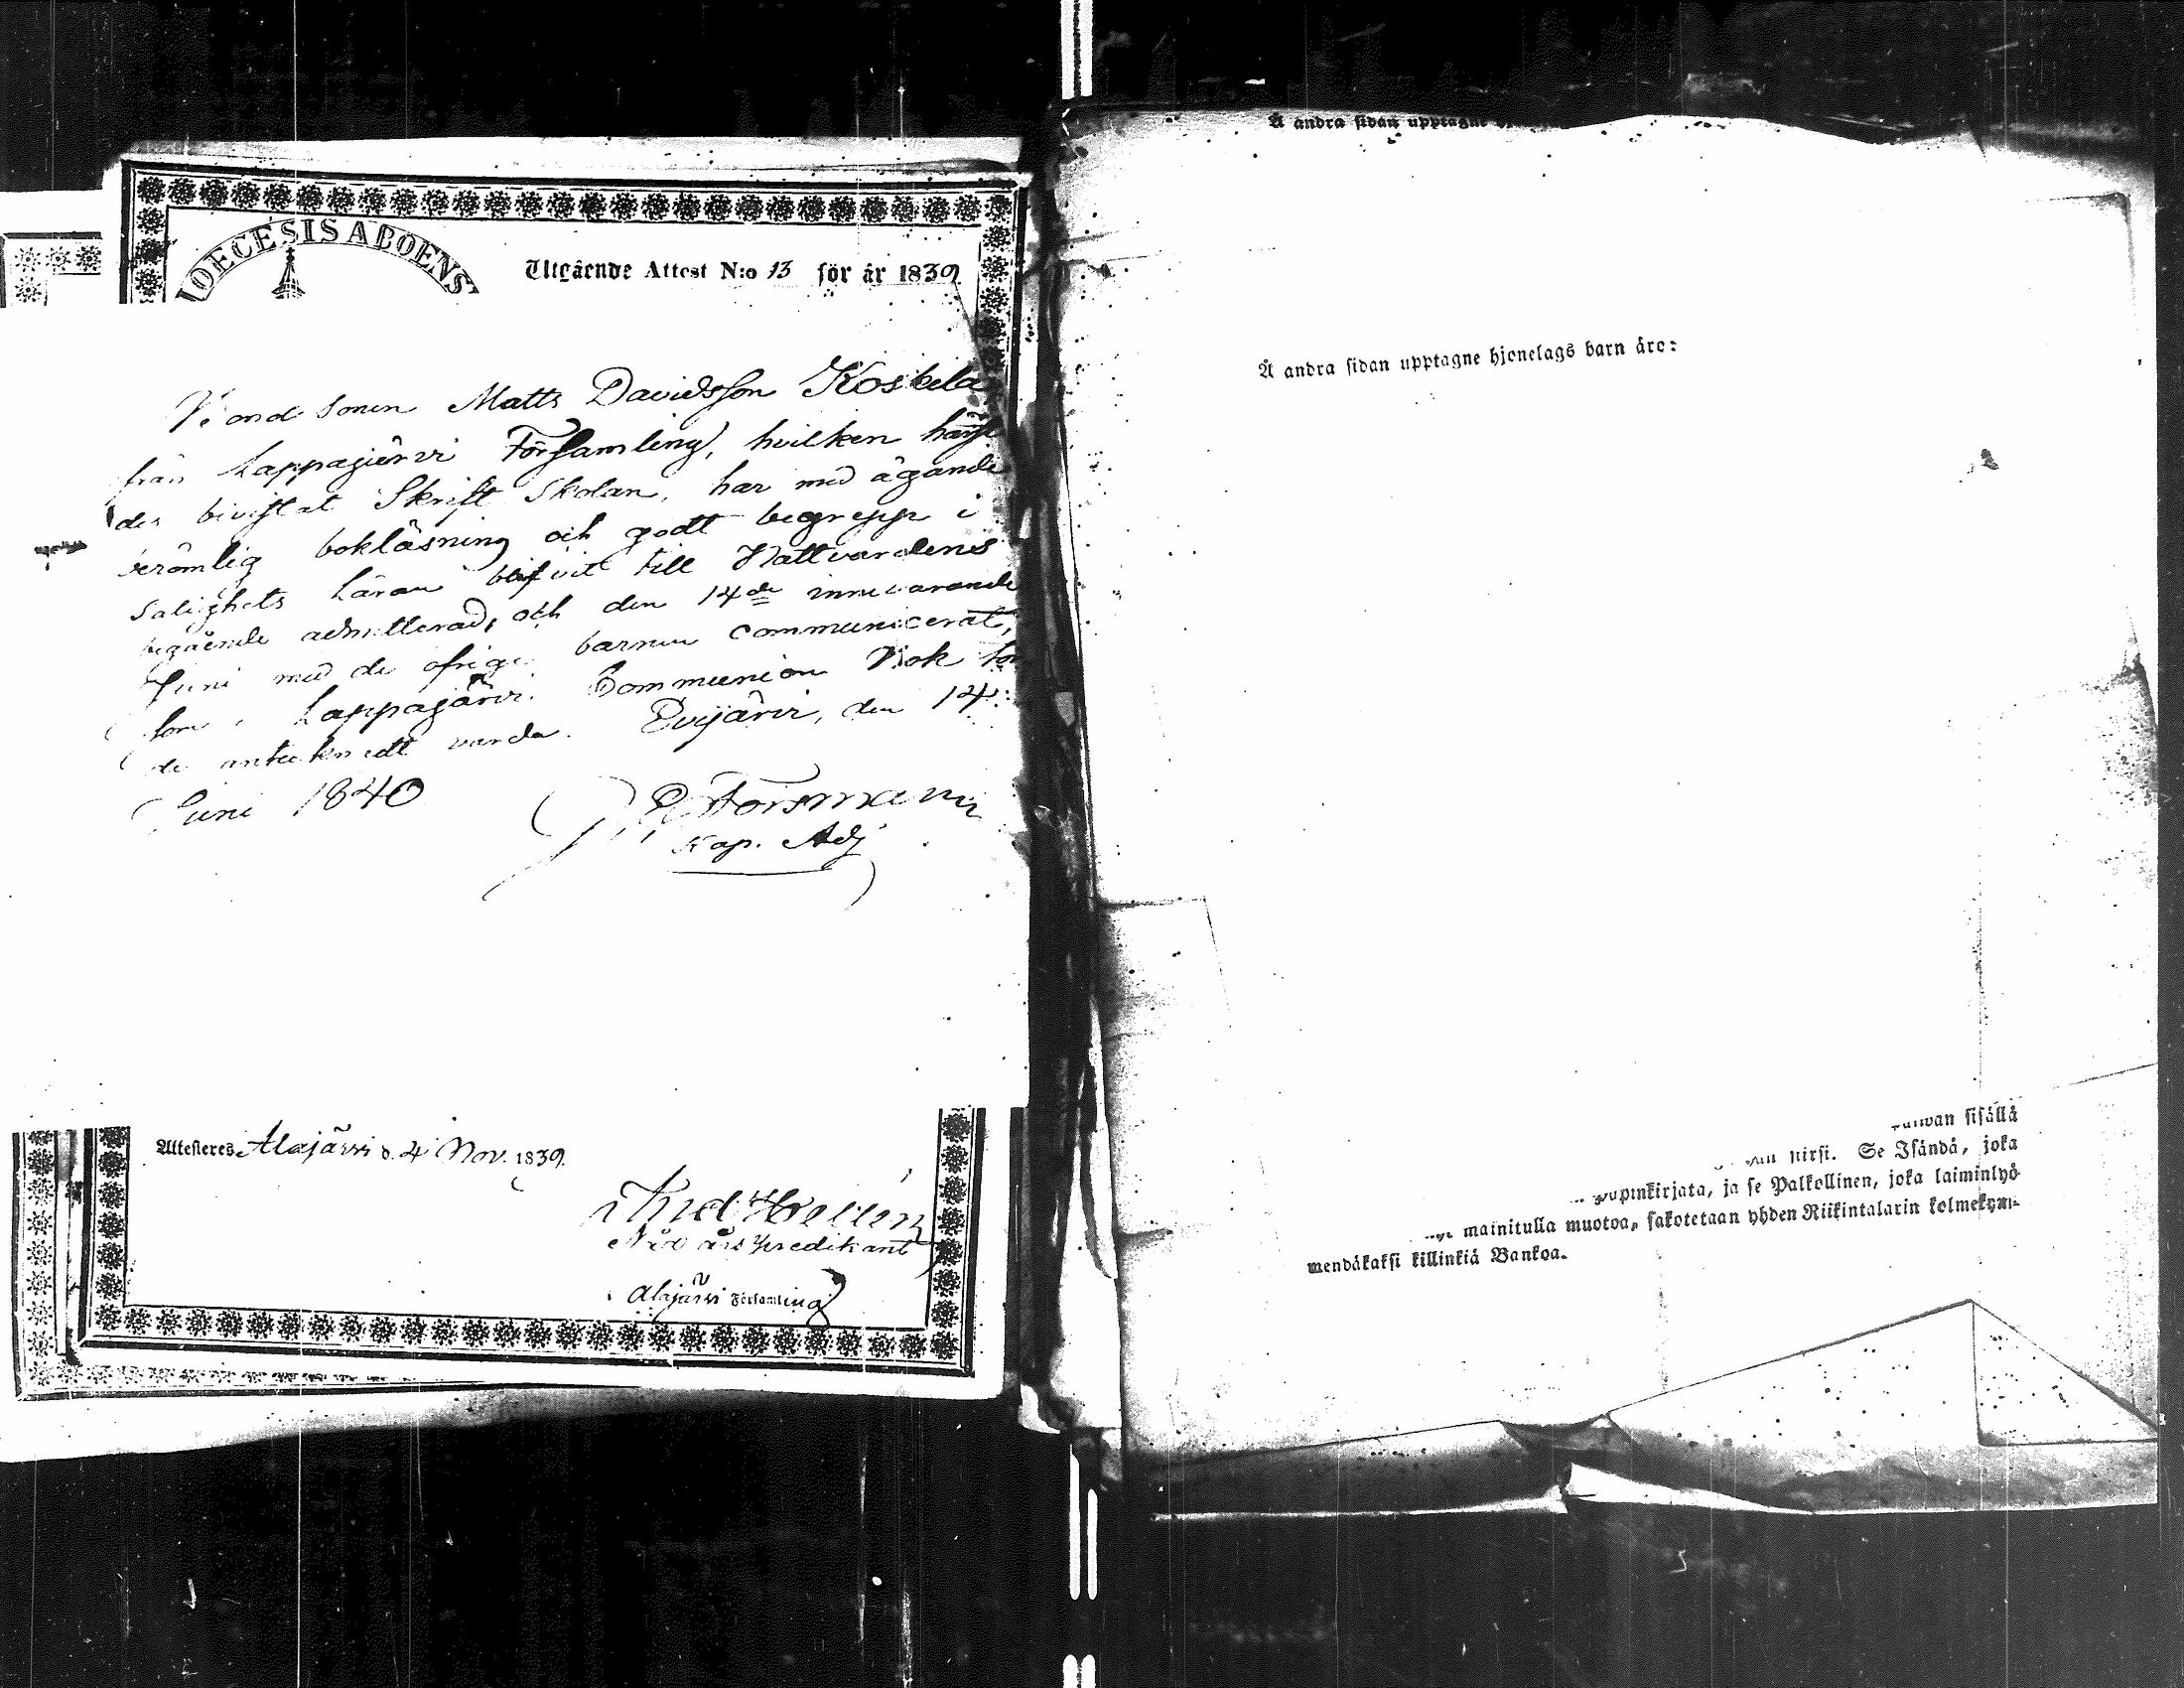 DIOECESIS ABOENS
Utgående Attest N:o 13 för år 1839
Bondsonen Matts Davidsson Koskela
från Lappajärvi Församling, hvilken härstä
des bivistat Skrift Skolan, har med ägande
berömlig bokläsning och godt begrepp i
Salighets Läran blifvit till Nattvardens
begående admitterad, och den 14de innevarande
Juni med de öfrige barnen communicerat,
som i Lappajärvi Communion Bok
de anteknadt varda. Evijärvi, den 14
Juni 1840
Forsmann
Kap. Adj
Attesteres Alajärvi d. 4 Nov. 1839.
And. Hellén
Nådårs predikant
Alajärvi Församling
Å andra sidan upptagne
Å andra sidan upptagne hjonelags barn äro:
sisällä
hirsi. Se Isändä, joka
ja se Palkollinen, joka laiminlyö
mainitulla muotoa, sakotetaan yhden Riikintalarin kolmekym-
mendäkaksi killinkiä Bankoa.